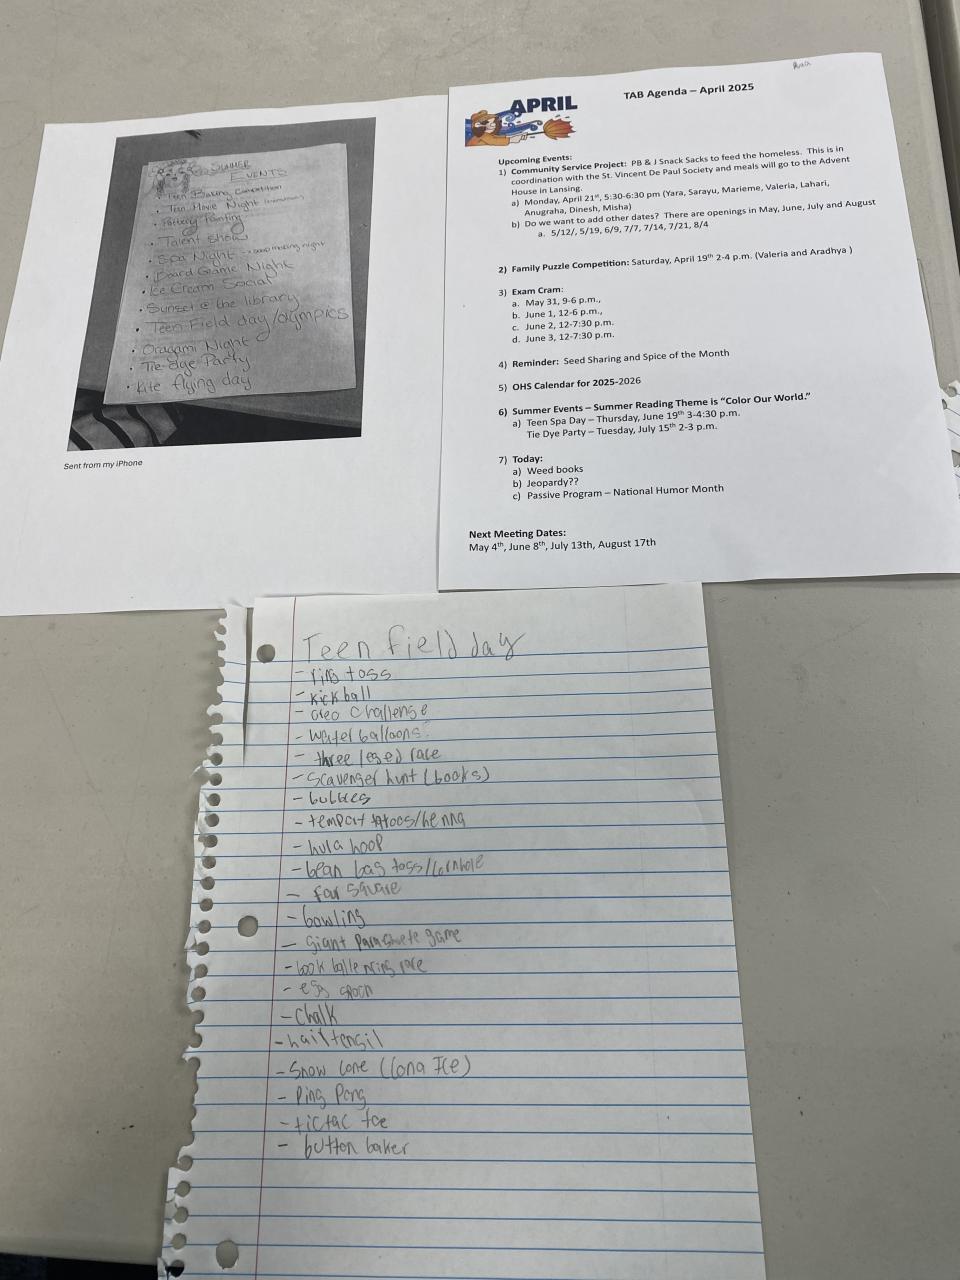 SUMMER
EVENTS
• Teen Baking Competition
• Teen Movie Night
• Pottery Painting
• Talent Show
• Spa Night - soap making night
• Board Game Night
• Ice Cream Social
• Sunset @ the library
• Teen Field day/olympics
• Oragami Night
• Tie-dye Party
• Kite flying day
Sent from my iPhone
APRIL
TAB Agenda – April 2025
Upcoming Events:
1) Community Service Project: PB & J Snack Sacks to feed the homeless. This is in
coordination with the St. Vincent De Paul Society and meals will go to the Advent
House in Lansing.
a) Monday, April 21st, 5:30-6:30 pm (Yara, Sarayu, Marieme, Valeria, Lahari,
Anugraha, Dinesh, Misha)
b) Do we want to add other dates? There are openings in May, June, July and August
a. 5/12/, 5/19, 6/9, 7/7, 7/14, 7/21, 8/4
2) Family Puzzle Competition: Saturday, April 19th 2-4 p.m. (Valeria and Aradhya )
3) Exam Cram:
a. May 31, 9-6 p.m.,
b. June 1, 12-6 p.m.,
c. June 2, 12-7:30 p.m.
d. June 3, 12-7:30 p.m.
4) Reminder: Seed Sharing and Spice of the Month
5) OHS Calendar for 2025-2026
6) Summer Events – Summer Reading Theme is “Color Our World.”
a) Teen Spa Day – Thursday, June 19th 3-4:30 p.m.
Tie Dye Party – Tuesday, July 15th 2-3 p.m.
7) Today:
a) Weed books
b) Jeopardy??
c) Passive Program – National Humor Month
Next Meeting Dates:
May 4th, June 8th, July 13th, August 17th
Teen field day
- ring toss
- kick ball
- oreo challenge
- water balloons
- three leged race
- scavenger hunt (books)
- bubbles
- tempory tatoos/henna
- hula hoop
- bean bag toss/cornhole
- four square
- bowling
- giant parachute game
- book ballencing race
- egg spoon
- chalk
- hair tensil
- snow cone (Kona Ice)
- Ping Pong
- tic tac toe
- button baker